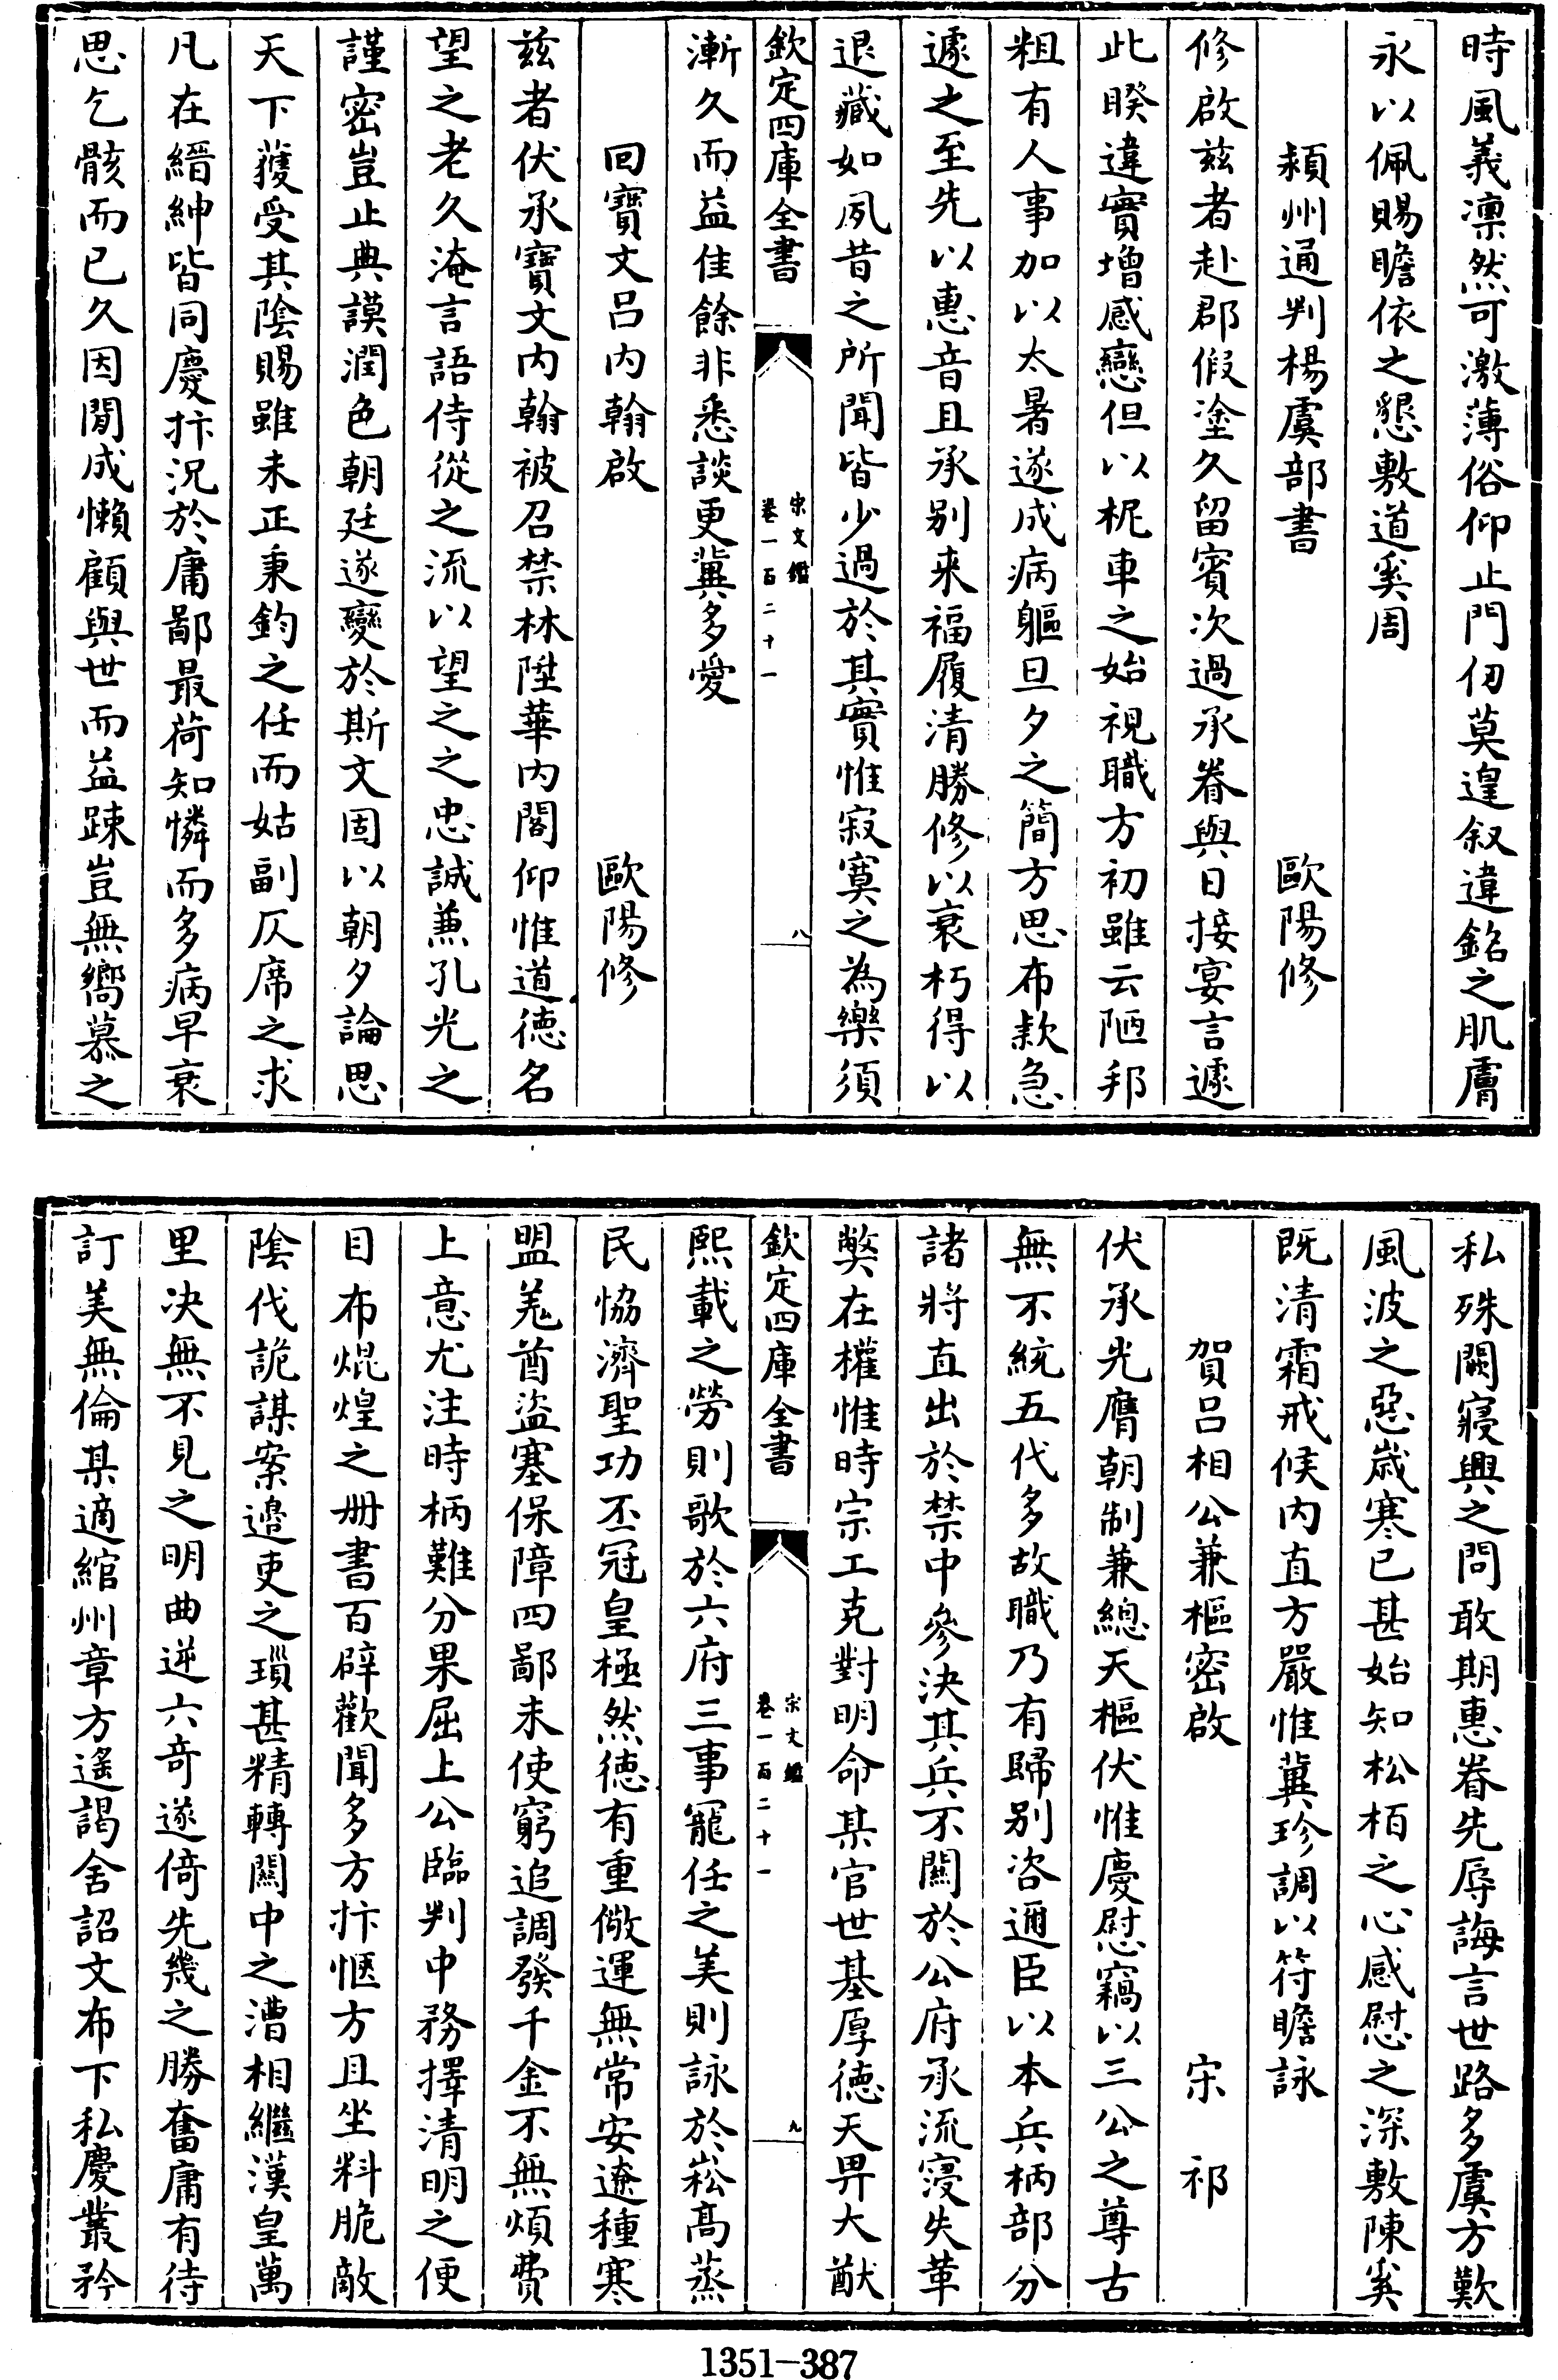 時風義凛然可激薄俗仰止門仞莫遑叙違銘之肌膚
永以佩賜瞻依之懇敷道奚周
潁州通判楊虞部書 歐陽修
修啟兹者赴郡假塗久留賓次過承眷與日接宴言遽
此暌違實增感戀但以柅車之始視職方初雖云陋邦
粗有人事加以太暑遂成病軀旦夕之簡方思布款急
遽之至先以惠音且承别來福履清勝修以衰朽得以
退藏如夙昔之所聞皆少過於其實惟寂寞之為樂須
欽定四庫全書 宋文鑑 卷一百二十一 八
漸久而益佳餘非悉談更冀多愛
回寶文吕内翰啟 歐陽修
兹者伏承寶文内翰被召禁林陞華内閣仰惟道德名
望之老久淹言語侍從之流以望之之忠誠兼孔光之
謹密豈止典謨潤色朝廷遂變於斯文固以朝夕論思
天下蒦受其陰賜雖未正秉鈞之任而姑副仄席之求
凡在縉紳皆同慶抃況於庸鄙最荷知憐而多病早衰
思乞骸而已久因閒成懶顧與世而益踈豈無嚮慕之
私殊闕寢興之問敢期惠眷先辱誨言世路多虞方歎
風波之惡歲寒已甚始知松栢之心感慰之深敷陳奚
既清霜戒候内直方嚴惟冀珍調以符瞻詠
賀吕相公兼樞密啟 宋祁
伏承光膺朝制兼總天樞伏惟慶慰竊以三公之尊古
無不統五代多故職乃有歸别咨邇臣以本兵柄部分
諸將直出於禁中參決其兵不關於公府承流寖失革
弊在權惟時宗工克對明命某官世基厚德天畀大猷
欽定四庫全書 宋文鑑 卷一百二十一 九
熙載之勞則歌於六府三事寵任之美則詠於崧高蒸
民恊濟聖功丕冠皇極然德有重儆運無常安遼種寒
盟羗酋盜塞保障四鄙未使窮追調發千金不無煩費
上意尤注時柄難分果屈上公臨判中務擇清明之便
目布焜煌之册書百辟歡聞多方抃愜方且坐料脆敵
陰伐詭謀案邉吏之瑣甚精轉關中之漕相繼漢皇萬
里决無不見之明曲逆六奇遂倚先幾之勝奮庸有待
訂美無倫某適綰州章方遙謁舍詔文布下私慶叢矜
1351-387